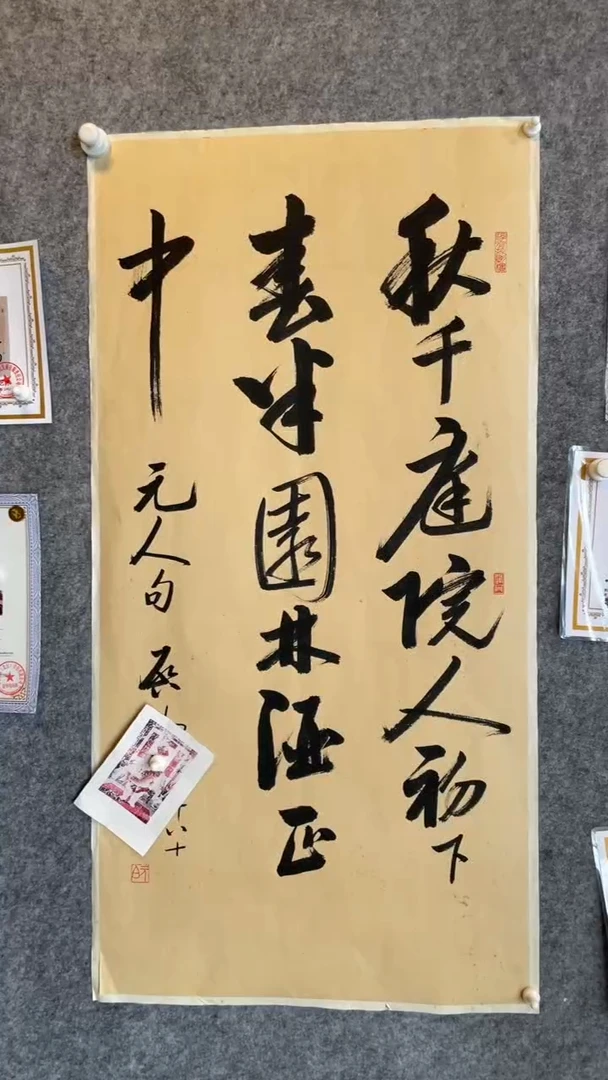 秋千庭院人初下
春半園林酒正
中 元人句 啟
八十